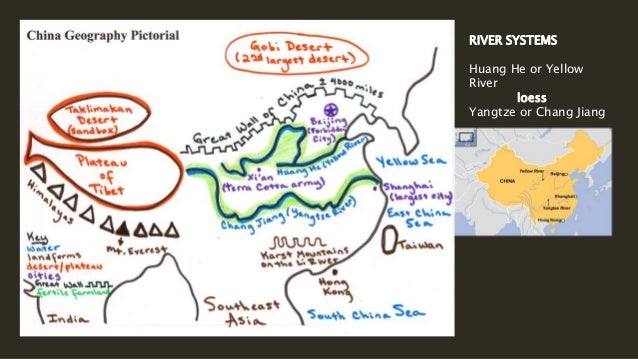 China Geography Pictorial
Gobi Desert
(2nd largest desert)
Taklimakan
Desert
(sandbox)
Great Wall of China ± 4000 miles
Beijing
(Forbidden
City)
Plateau
of
Tibet
Himalayas
Mt. Everest
Xi'an
(terra cotta army)
Huang He (Yellow River)
Yellow Sea
Chang Jiang (Yangtze River)
Shanghai
(largest city)
East China
Sea
Taiwan
Karst Mountains
on the Li River
Hong
Kong
South China Sea
Southeast
Asia
India
Key
water
landforms
desert/plateau
cities
Great Wall
fertile farmland
RIVER SYSTEMS
Huang He or Yellow
River
loess
Yangtze or Chang Jiang
CHINA
Yellow River
Beijing
Shanghai
Yangtze River
Hong Kong